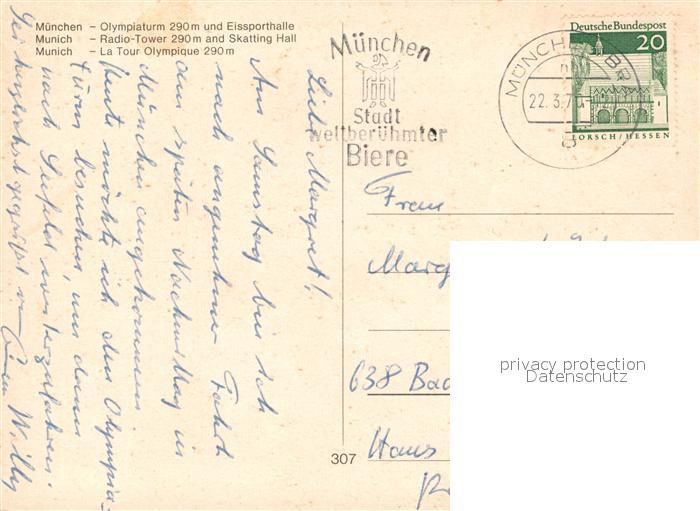 München – Olympiaturm 290 m und Eissporthalle
Munich – Radio-Tower 290 m and Skatting Hall
Munich – La Tour Olympique 290 m
München
Stadt
weltberühmter
Biere
Deutsche Bundespost
20
LORSCH/HESSEN
MÜNCHEN
22.3.7
Liebe Margret!
Am Samstag bin ich
nach angenehmer Fahrt
am späten Nachmittag in
München angekommen.
Heute möchte ich den Olympia-
turm besuchen und dann
nach weiterzufahren.
Sei herzlichst gegrüßt von Willy
Frau
638 Bad
Haus
307
privacy protection
Datenschutz